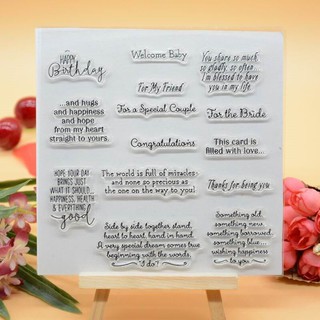 HAPPY
Birthday
Welcome Baby
You share so much
so gladly, so often...
I'm blessed to have
you in my life
For My Friend
...and hugs
and happiness
and hope
from my heart
straight to yours.
For a Special Couple
For the Bride
Congratulations
This card is
filled with love...
HOPE YOUR DAY
BRINGS JUST
WHAT IT SHOULD...
HAPPINESS, HEALTH
& EVERYTHING
good
The world is full of miracles
and none so precious as
the one on the way to you.
Thanks for being you
Side by side together stand,
heart to heart, hand in hand.
A very special dream comes true
beginning with the words,
"I do"!
Something old,
something new
something borrowed,
something blue....
wishing happiness
to you